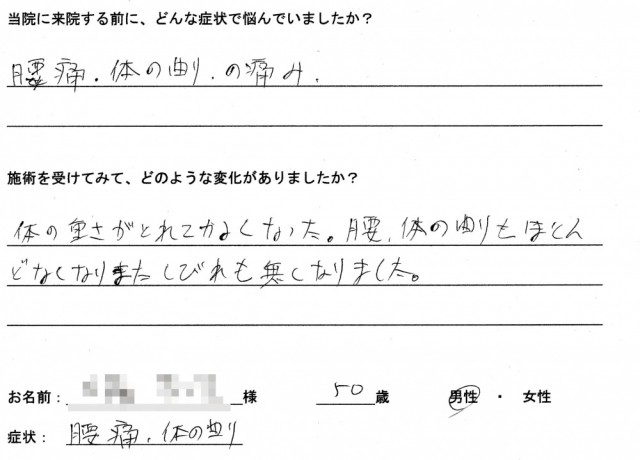 当院に来院する前に、どんな症状で悩んでいましたか？
腰痛．体の曲り．の痛み．
施術を受けてみて、どのような変化がありましたか？
体の重さがとれてかるくなった。腰、体の曲りもほとん
どなくなりまたしびれも無くなりました。
お名前： 様 50歳 男性 ・ 女性
症状： 腰痛．体の曲り